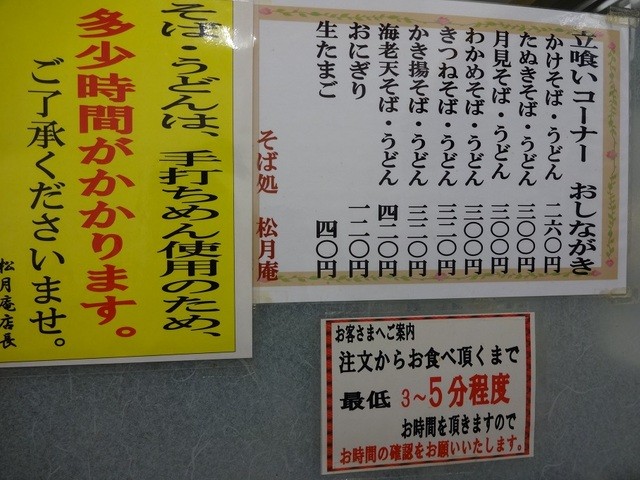 立喰いコーナー おしながき
かけそば・うどん 二六〇円
たぬきそば・うどん 三〇〇円
月見そば・うどん 三〇〇円
わかめそば・うどん 三〇〇円
きつねそば・うどん 三二〇円
かき揚そば・うどん 三二〇円
海老天そば・うどん 四二〇円
おにぎり 一二〇円
生たまご 四〇円
そば処 松月庵
そば・うどんは、手打ちめん使用のため、
多少時間がかかります。
ご了承くださいませ。
松月庵店長
お客さまへご案内
注文からお食べ頂くまで
最低 3~5分程度
お時間を頂きますので
お時間の確認をお願いいたします。